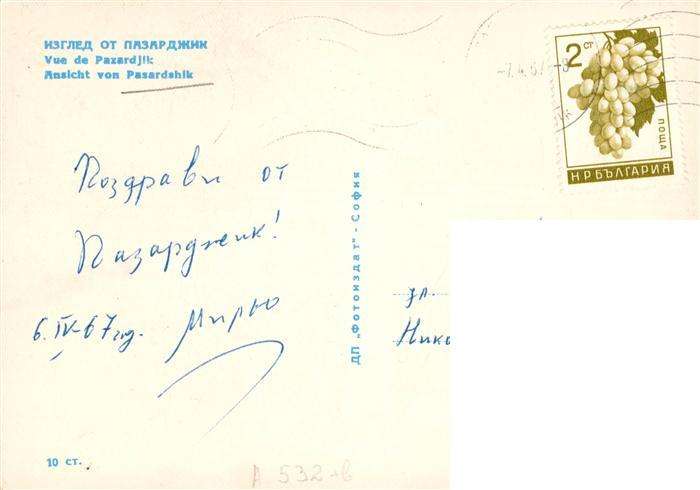 ИЗГЛЕД ОТ ПАЗАРДЖИК
Vue de Pazardjik
Ansicht von Pasardshik
2 СТ
ПОЩА
НР БЪЛГАРИЯ
Поздрави от
Пазарджик!
6. IV-67 год. Мирьо
ДП „Фотоиздат" - София
ул.
Нико
10 ст.
А 532-в